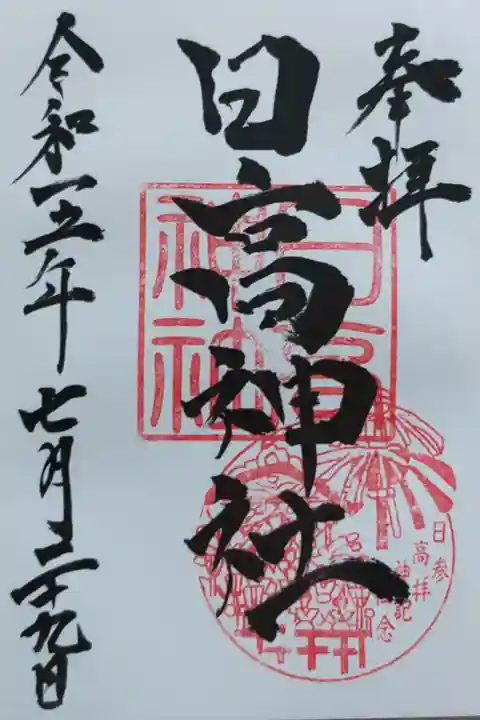 奉拝
日高神社
日高神社
参拝記念
日高神社
令和五年七月二十九日